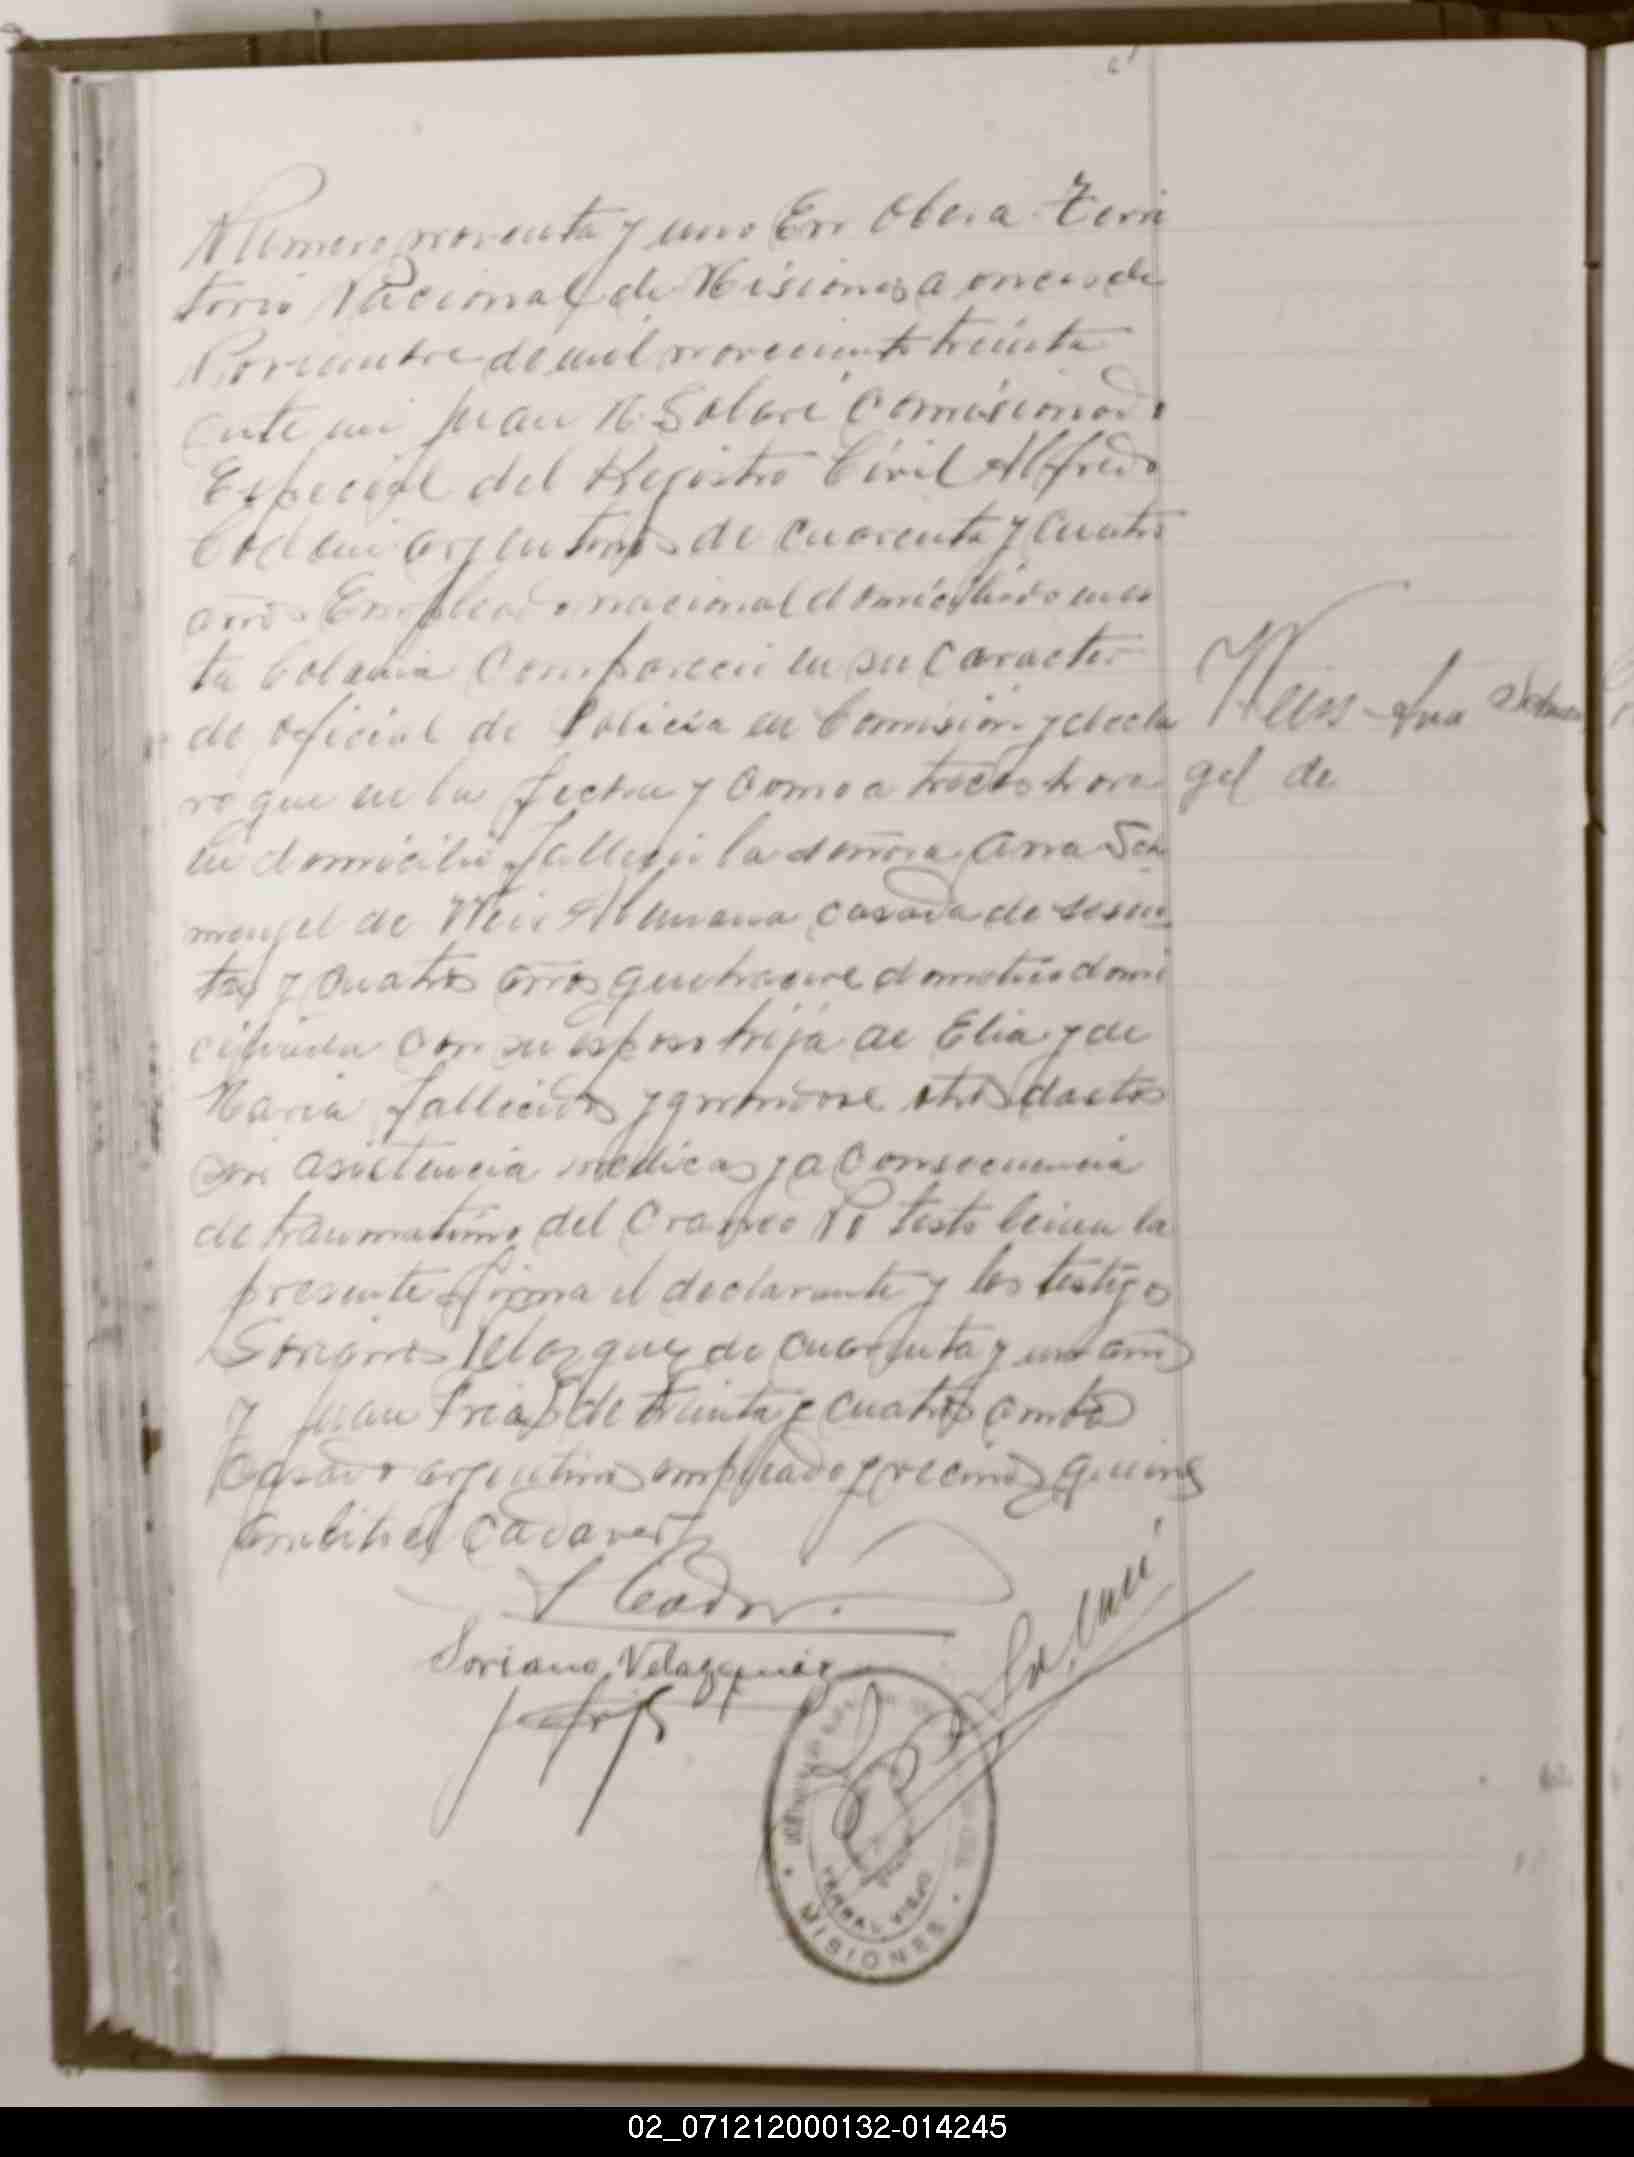 Numero noventa y uno En Obera Terri
torio Nacional de Misiones a once de
Noviembre de mil novecientos treinta
ante mi Juan M. Solari Comisionado
Especial del Registro Civil Alfredo
argentino de cuarenta y cuatro
años Empleado nacional domiciliado en es
ta Colonia Comparecio en su caracter
de oficial de Policia en Comisión y decla
ro que en la fecha y como a trece horas
en domicilio fallecio la señora Ana Sch
mengel de Weis Alemana casada de sesen
ta y cuatro años quehacere domestico domi
ciliada con su esposo hija de Elia y de
Maria fallecidos ygnorandose otros datos
sin asistencia medica y a consecuencia
de traumatismo del craneo No testo leida la
presente firma el declarante y los testigos
Soriano Velazquez de cuarenta y un años
y Juan Frias de treinta y cuatro ambos
casado argentinos empleado y vecinos quienes
el cadaver
Soriano Velazquez
Solari
Weis Ana Schmen
gel de
YERBAL VIEJO
MISIONES
02_071212000132-014245